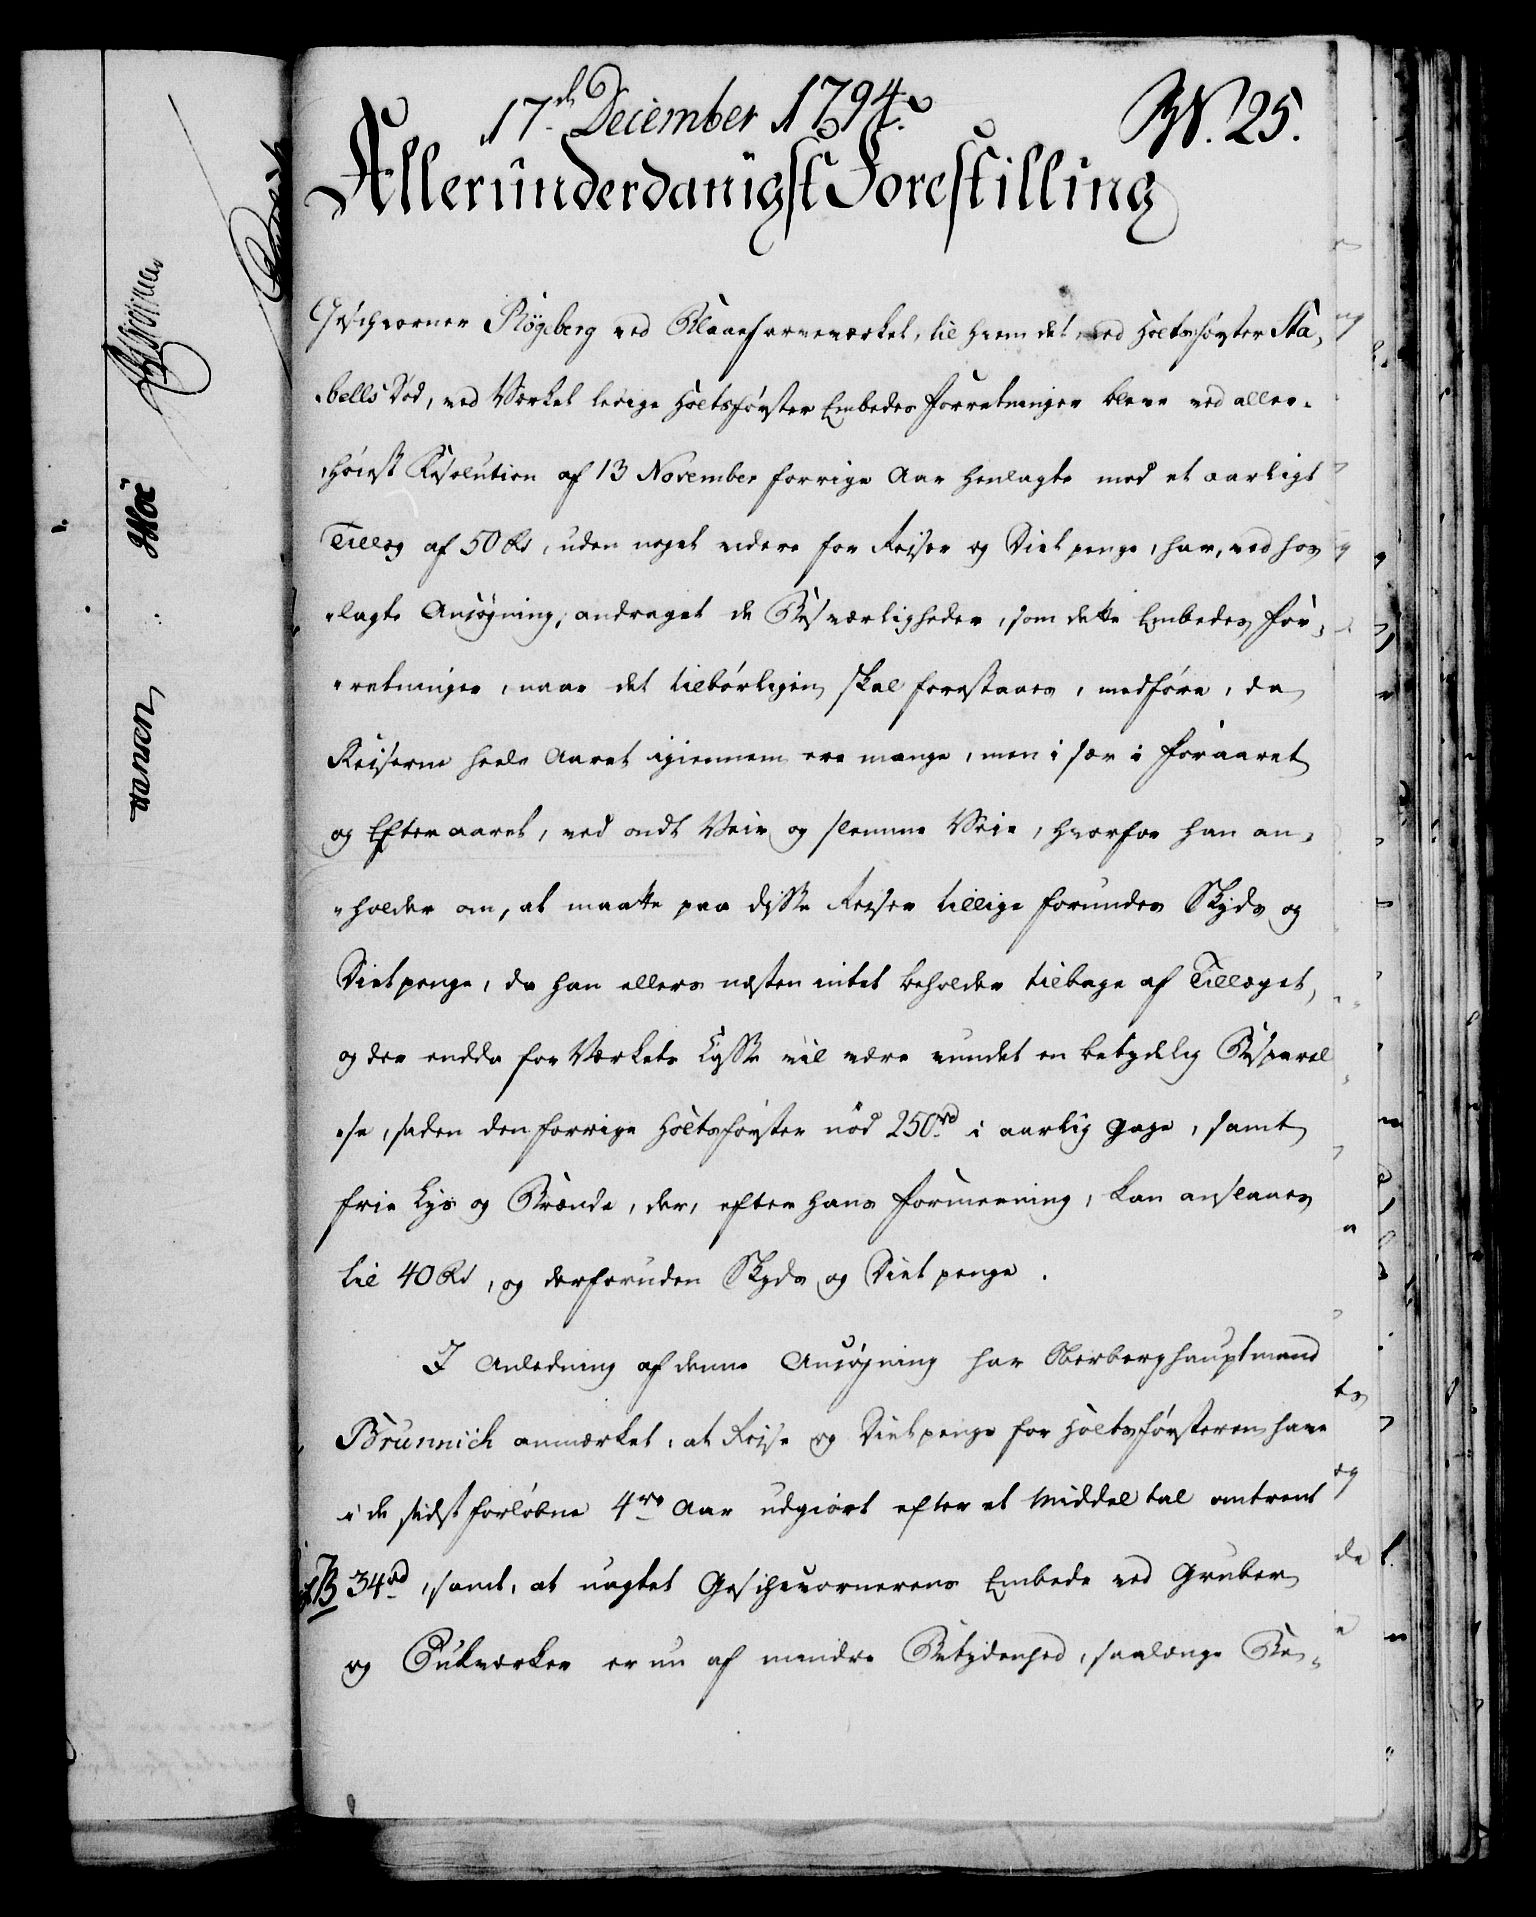 17de December 1794.
No. 25.
Allerunderdanigst Forestilling
Geschworner Røgeberg ved Blaafarveverket, til hvem det, ved Holtsførster Sta„
„bells Død, ved Værket ledige Holtsførster Embedes Forretninger bleve ved aller„
„høiest Resolution af 13 November forrige Aar henlagte med et aarligt
Tillæg af 50 Rd, uden noget videre for Reiser og Dietpenge, har, ved hos
„lagte Ansøgning, andraget de Besværligheder, som dette Embedes For„
„retninger, naar det tilbørligen skal forestaaes, medføre, da
Reiserne heele Aaret igiennem ere mange, men i sær i Foraaret
og Efteraaret, ved ondt Veir og slemme Veie, hvorfor han an„
„holder om, at maatte paa disse Reiser tillige forundes Skyds og
Dietpenge, da han ellers næsten intet beholder tilbage af Tillæget,
og der endda for Værkets Casse vil være vundet en betydelig Besparel
„se, siden den forrige Holtsførster nød 250rd i aarlig Gage, samt
frie Lys og Brænde, der, efter hans Formeening, kan ansslaaes
til 40 Rd, og derforuden Skyds og Dietpenge.
I Anledning af denne Ansøgning har Oberberghauptmand
Brünnich anmærket, at Reise og Dietpenge for Holtsførsteren have
i de sidst forløbne 4re Aar udgiort efter et Middel tal omtrent
34rd, samt, at uagtet Geschwornerens Embede ved Gruber
og Pukværker er nu af mindre Betydenhed, saalænge Be„